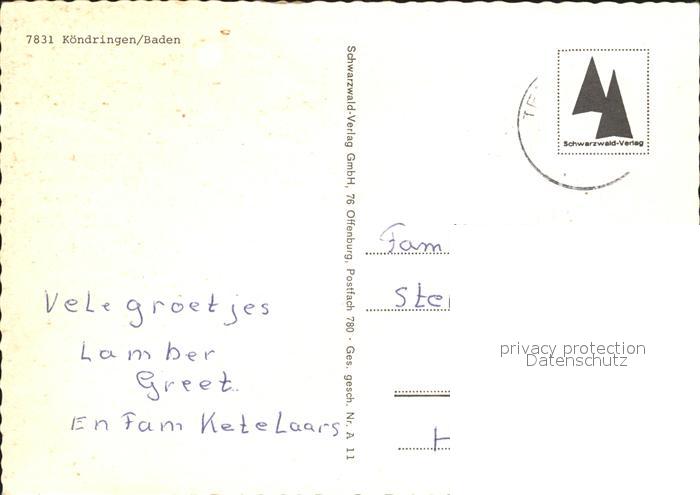 7831 Köndringen/Baden
Schwarzwald-Verlag GmbH, 76 Offenburg, Postfach 780 · Ges. gesch. Nr. A 11
Schwarzwald-Verlag
Fam
Vele groetjes
Lamber
Greet.
En Fam Ketelaars
privacy protection
Datenschutz